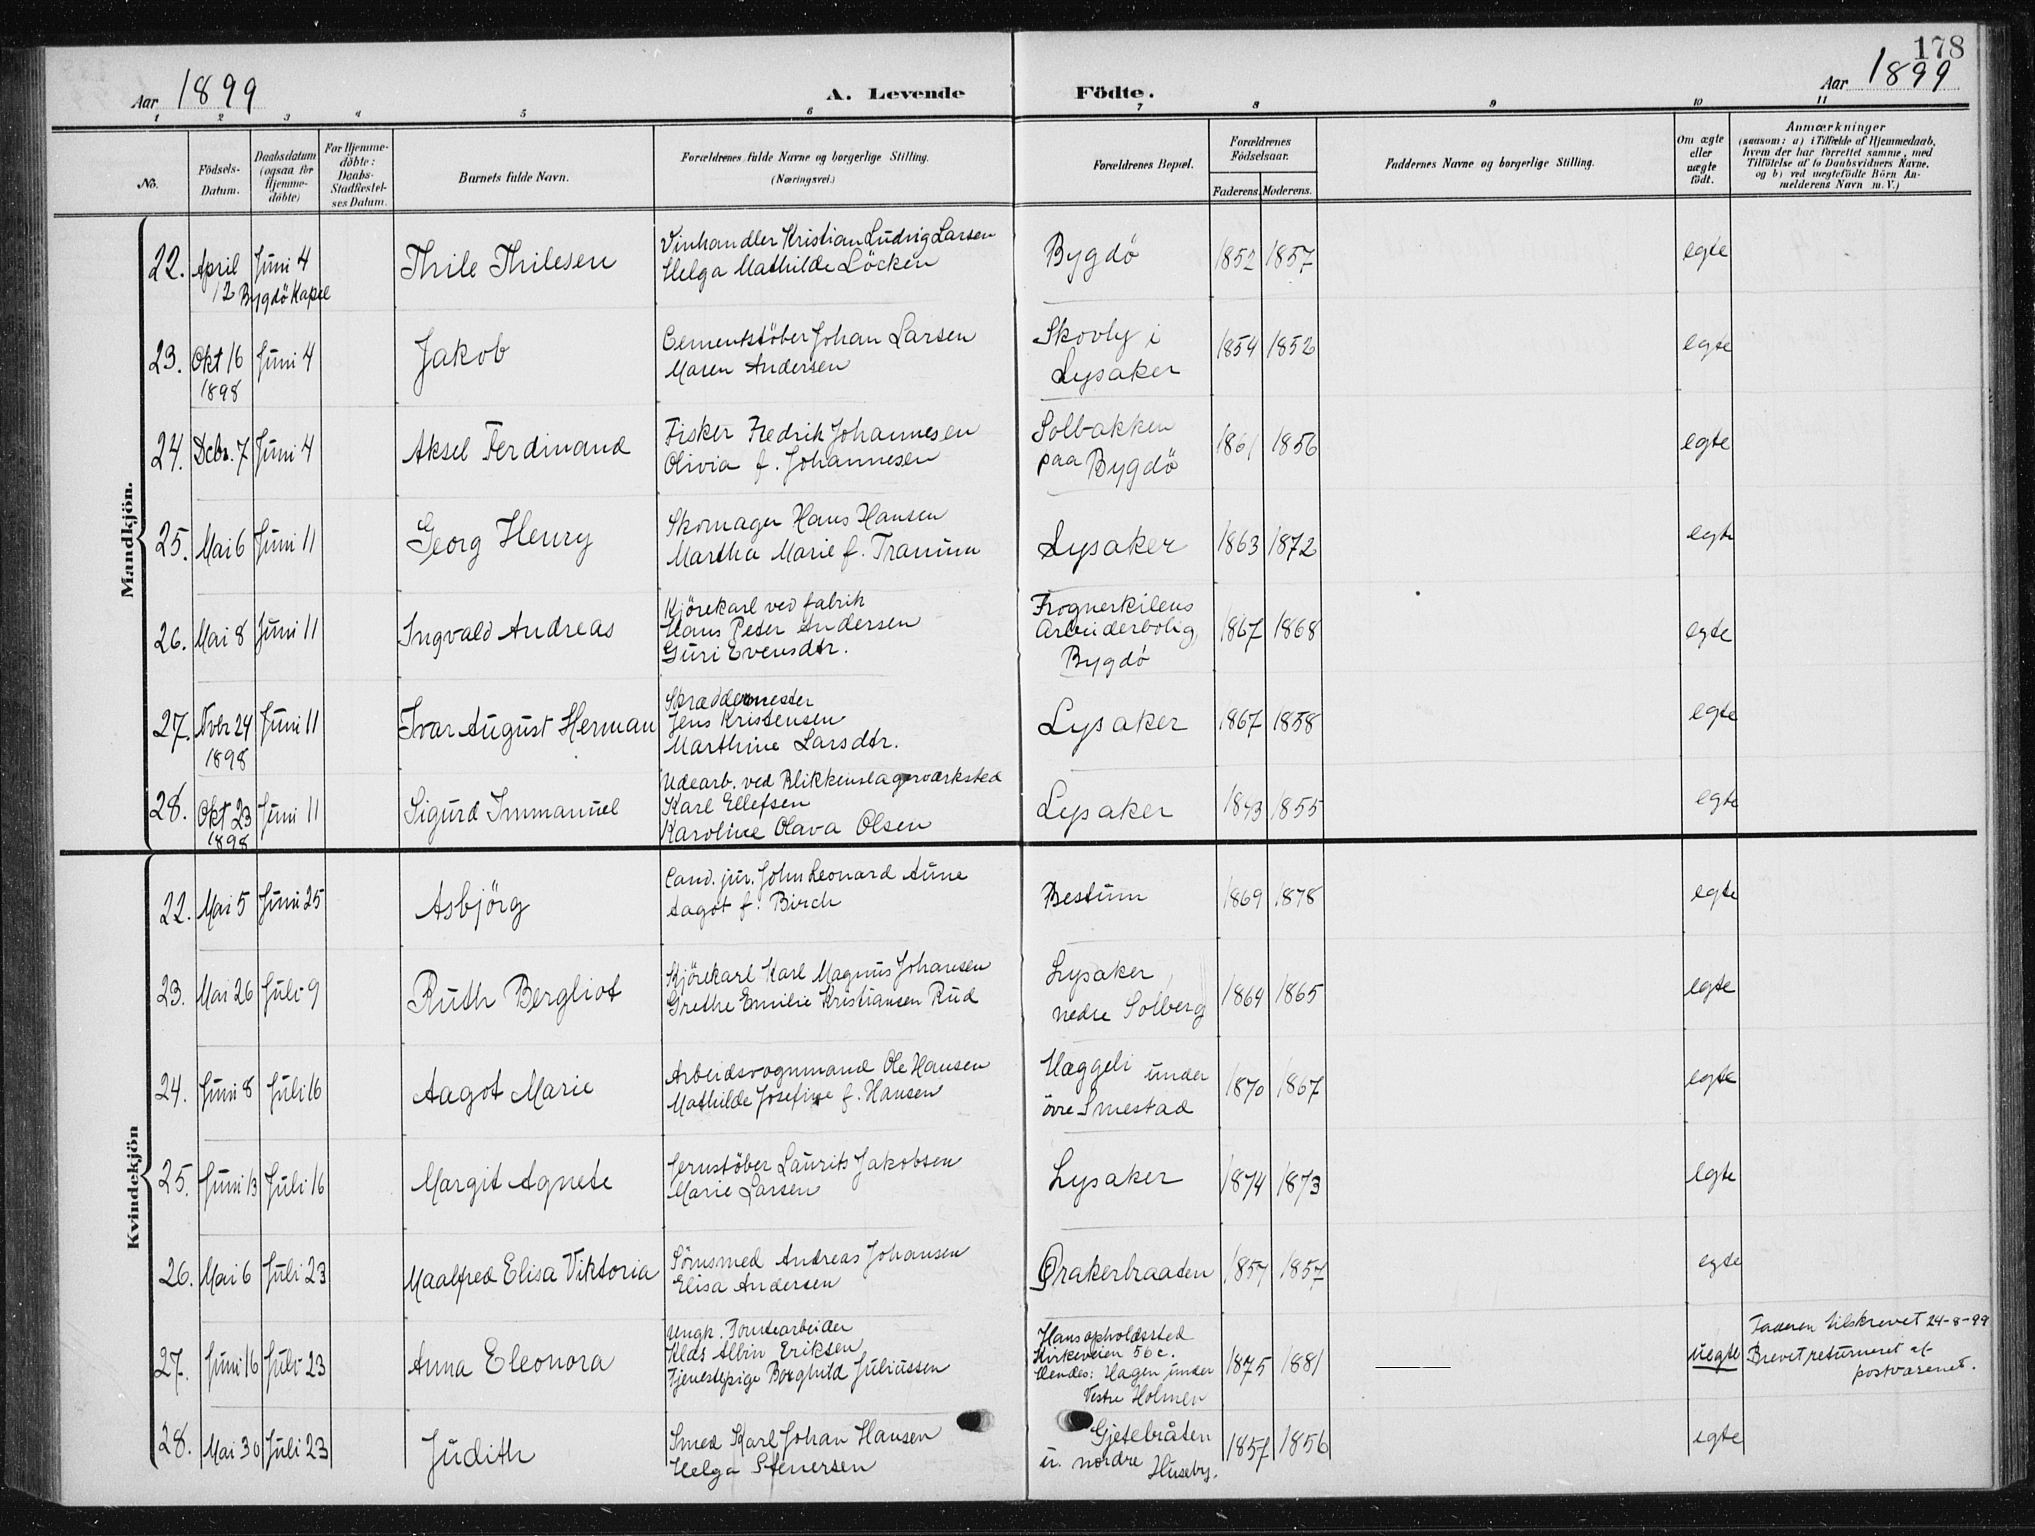 178
Aar 1899
A. Levende
Födte.
Aar 1899
1 2 3 4 5 6 7 8 9 10 11
No.
Födsels-
Datum.
Daabsdatum
(ogsaa for
Hjemme-
döbte)
For Hjemme-
döbte:
Daabs-
Stadfæstel-
ses Datum.
Barnets fulde Navn.
Forældrenes fulde Navne og borgerlige Stilling.
(Næringsvei.)
Forældrenes Bopæl.
Forældrenes
Födselsaar.
Faderens. Moderens.
Faddernes Navne og borgerlige Stilling.
Om ægte
eller
uægte
födt.
Anmærkninger
(saasom: a) i Tilfælde af Hjemmedaab,
hvem der har forrettet samme, med
Tilföielse af to Daabsvidners Navne,
og b) ved uægtefödte Börn An-
melderens Navn m. V.)
Mandkjön.
22. April
12
Juni 4
Bygdö Kapel
Thile Thilesen
Vinhandler Kristian Ludvig Larsen
Helga Mathilde Löcken
Bygdö
1852 1857
egte
23. Okt 16
1898
Juni 4
Jakob
Cementstöber Johan Larsen
Maren Andersen
Skovly i
Lysaker
1854 1852
egte
24. Debr. 7 Juni 4
Aksel Ferdinand
Fisker Fredrik Johannesen
Olivia f. Johannesen
Solbakken
paa Bygdö
1861 1856
egte
25. Mai 6 Juni 11
Georg Henry
Skomager Hans Hansen
Martha Marie f. Tranum
Lysaker
1863 1872
egte
26. Mai 8 Juni 11
Ingvald Andreas
Kjörekarl ved fabrik
Hans Peter Andersen
Guri Evensdtr.
Frognerkilens
Arbeiderbolig,
Bygdö
1867 1868
egte
27. Nvbr 24
1898
Juni 11
Ivar August Herman
Skræddermester
Jens Kristensen
Marthine Larsdtr.
Lysaker
1867 1858
egte
28. Okt 23
1898
Juni 11
Sigurd Immanuel
Udearb. ved Blikkenslagerværksted
Karl Ellefsen
Karoline Olava Olsen
Lysaker
1843 1855
egte
Kvindekjön
22. Mai 5 Juni 25
Asbjörg
Cand. jur. John Leonard Aune
Aagot f. Birch
Bestum
1869 1878
egte
23. Mai 26 Juli 9
Ruth Bergliot
Kjörekarl Karl Magnus Johansen
Grethe Emilie Kristiansen Rud
Lysaker
nedre Solberg
1864 1865
egte
24. Juni 8 Juli 16
Aagot Marie
Arbeidsvognmand Ole Hansen
Mathilde Josefine f. Hansen
Hæggeli under
övre Smestad
1870 1867
egte
25. Juni 13 Juli 16
Margit Agnete
Jernstöber Laurits Jakobsen
Marie Larsen
Lysaker
1874 1873
egte
26. Mai 6 Juli 23
Maalfred Elisa Viktoria
Sömsmed Andreas Johansen
Elisa Andersen
Örakerbraaten
1857 1857
egte
27. Juni 16 Juli 23
Anna Eleonora
Ungk. Tomtearbeider
Klas Albin Eriksen
Tjenestepige Borghild Juliussen
Hans opholdssted
Kirkeveien 56c.
Hendes: Hagen under
Vestre Holmen
1875 1881
uegte
Faderen tilskrevet 24-8-99
Brevet returneret af
postvæsenet.
28. Mai 30 Juli 23
Judith
Smed Karl Johan Hansen
Helga Stenersen
Gjetebråten
u. nordre Huseby.
1857 1856
egte